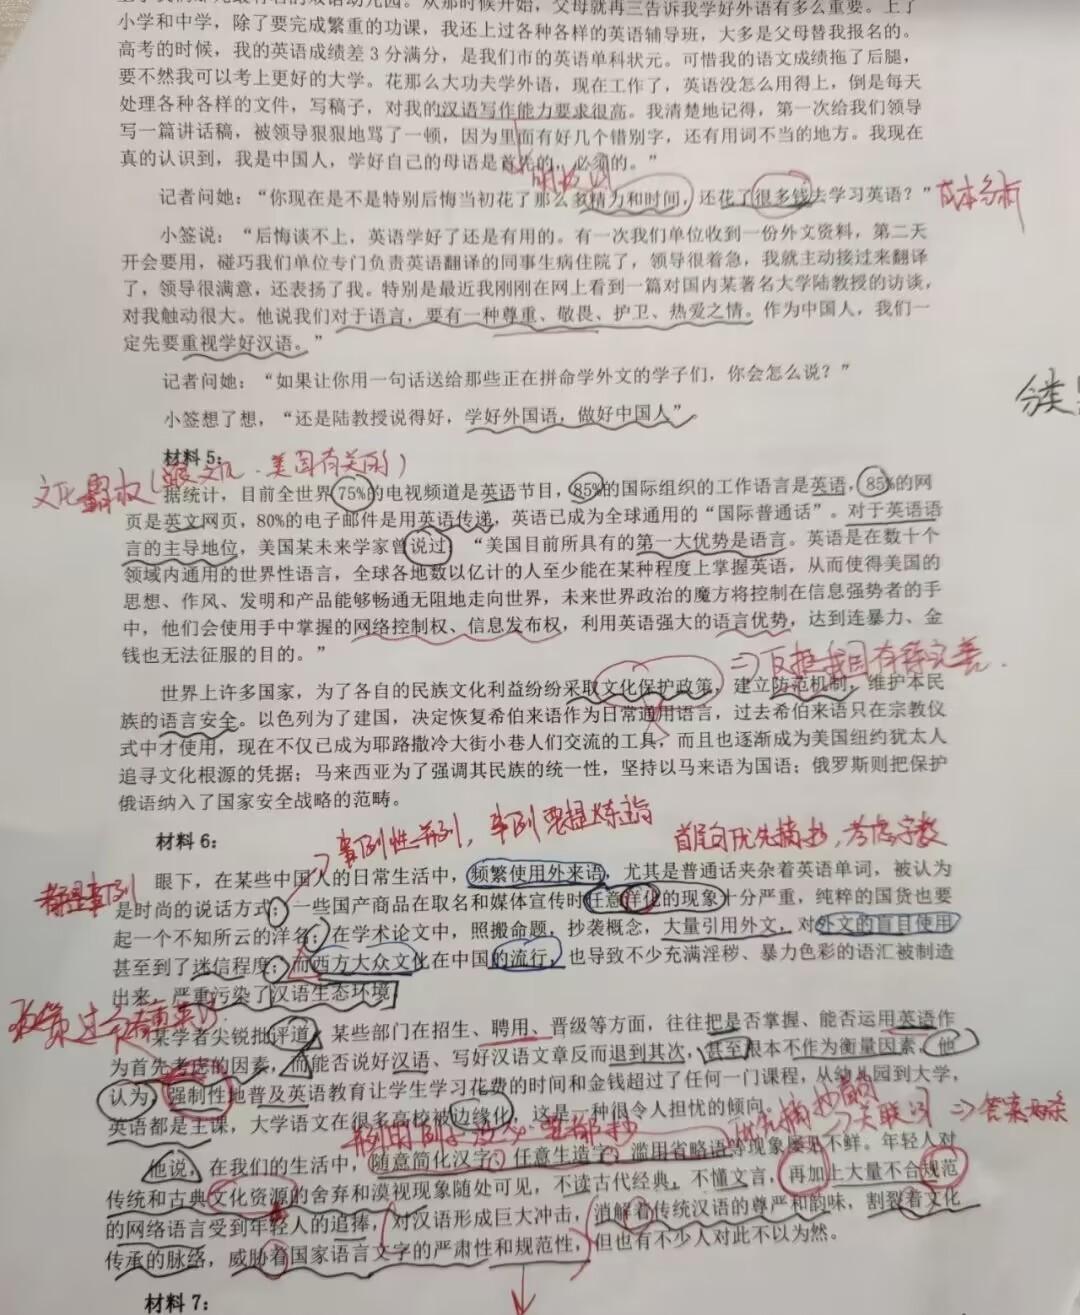 小学和中学，除了要完成繁重的功课，我还上过各种各样的英语辅导班，大多是父母替我报名的。
高考的时候，我的英语成绩差3分满分，是我们市的英语单科状元。可惜我的语文成绩拖了后腿，
要不然我可以考上更好的大学。花那么大功夫学外语，现在工作了，英语没怎么用得上，倒是每天
处理各种各样的文件，写稿子，对我的汉语写作能力要求很高。我清楚地记得，第一次给我们领导
写一篇讲话稿，被领导狠狠地骂了一顿，因为里面有好几个错别字，还有用词不当的地方。我现在
真的认识到，我是中国人，学好自己的母语是首先的，必须的。”
记者问她：“你现在是不是特别后悔当初花了那么多精力和时间，还花了很多钱去学习英语？”
成本分析
小签说：“后悔谈不上，英语学好了还是有用的。有一次我们单位收到一份外文资料，第二天
开会要用，碰巧我们单位专门负责英语翻译的同事生病住院了，领导很着急，我就主动接过来翻译
了，领导很满意，还表扬了我。特别是最近我刚刚在网上看到一篇对国内某著名大学陆教授的访谈，
对我触动很大。他说我们对于语言，要有一种尊重、敬畏、护卫、热爱之情。作为中国人，我们一
定先要重视学好汉语。”
记者问她：“如果让你用一句话送给那些正在拼命学外文的学子们，你会怎么说？”
分类
小签想了想，“还是陆教授说得好，学好外国语，做好中国人”
材料5：
文化霸权（ 美国有关的）
据统计，目前全世界75%的电视频道是英语节目，85%的国际组织的工作语言是英语，85%的网
页是英文网页，80%的电子邮件是用英语传递，英语已成为全球通用的“国际普通话”。对于英语语
言的主导地位，美国某未来学家曾说过“美国目前所具有的第一大优势是语言。英语是在数十个
领域内通用的世界性语言，全球各地数以亿计的人至少能在某种程度上掌握英语，从而使得美国的
思想、作风、发明和产品能够畅通无阻地走向世界，未来世界政治的魔方将控制在信息强势者的手
中，他们会使用手中掌握的网络控制权、信息发布权，利用英语强大的语言优势，达到连暴力、金
钱也无法征服的目的。”
反推我国有待完善.
世界上许多国家，为了各自的民族文化利益纷纷采取文化保护政策，建立防范机制，维护本民
族的语言安全。以色列为了建国，决定恢复希伯来语作为日常通用语言，过去希伯来语只在宗教仪
式中才使用，现在不仅已成为耶路撒冷大街小巷人们交流的工具，而且也逐渐成为美国纽约犹太人
追寻文化根源的凭据；马来西亚为了强调其民族的统一性，坚持以马来语为国语；俄罗斯则把保护
俄语纳入了国家安全战略的范畴。
案例性并列，案例要提炼主旨
首尾句优先摘抄，考虑字数
材料6：
都是案例
眼下，在某些中国人的日常生活中，频繁使用外来语，尤其是普通话夹杂着英语单词，被认为
是时尚的说话方式；一些国产商品在取名和媒体宣传时任意洋化的现象十分严重，纯粹的国货也要
起一个不知所云的洋名；在学术论文中，照搬命题，抄袭概念，大量引用外文，对外文的盲目使用
甚至到了迷信程度；而西方大众文化在中国的流行，也导致不少充满淫秽、暴力色彩的语汇被制造
出来，严重污染了汉语生态环境
政策过于
某学者尖锐批评道，某些部门在招生、聘用、晋级等方面，往往把是否掌握、能否运用英语作
为首先考虑的因素，而能否说好汉语、写好汉语文章反而退到其次，甚至根本不作为衡量因素，他
认为，强制性地普及英语教育让学生学习花费的时间和金钱超过了任何一门课程，从幼儿园到大学，
英语都是主课，大学语文在很多高校被边缘化，这是一种很令人担忧的倾向。
他说，在我们的生活中，随意简化汉字、任意生造字、滥用省略语等现象屡见不鲜。年轻人对
传统和古典文化资源的舍弃和漠视现象随处可见，不读古代经典，不懂文言，再加上大量不合规范
的网络语言受到年轻人的追捧，对汉语形成巨大冲击，消解着传统汉语的尊严和韵味，割裂着文化
传承的脉络，威胁着国家语言文字的严肃性和规范性，但也有不少人对此不以为然。
材料7：